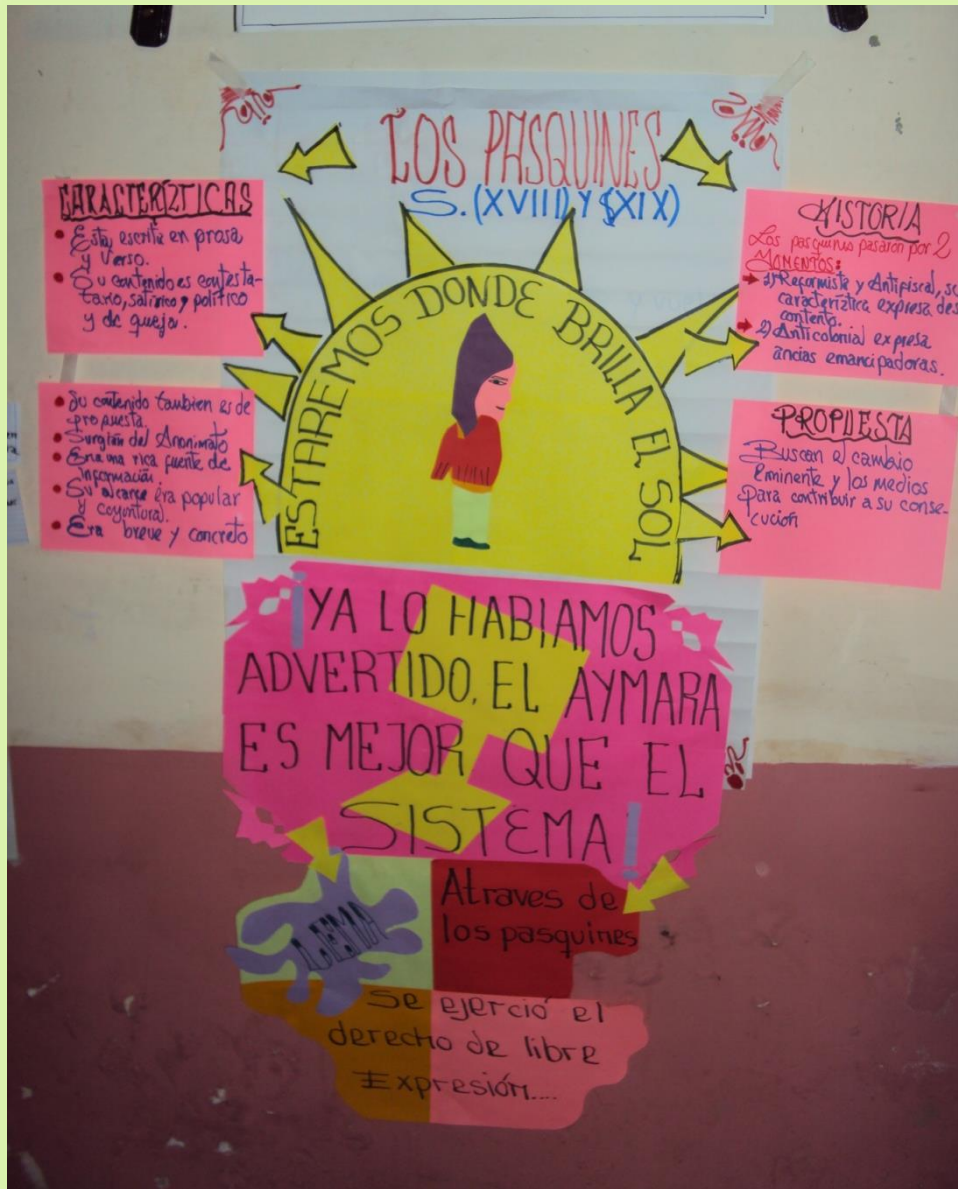 LOS PASQUINES
S. (XVIII) Y (XIX)
CARACTERÍZTICAS
• Esta escrita en prosa
y Verso.
• Su contenido es contesta-
tario, satírico y político
y de queja.
• Su contenido tambien es de
propuesta.
• Surgían del Anonimato
• Era una rica fuente de
información.
• Su alcance éra popular
y coyuntural.
• Era breve y concreto
HISTORIA
Los pasquines pasarón por 2
MOMENTOS:
1) Reformista y Antifiscal, su
caracteriztica expresa des
contento.
2) Anticolonial expresa
ancias emancipadoras.
PROPUESTA
Buscan el cambio
Eminente y los medios
para contribuir a su conse-
cución
ESTAREMOS DONDE BRILLA EL SOL
¡YA LO HABIAMOS
ADVERTIDO, EL AYMARA
ES MEJOR QUE EL
SISTEMA!
LEMA
Atraves de
los pasquines
Se ejerció el
derecho de libre
Expresión....